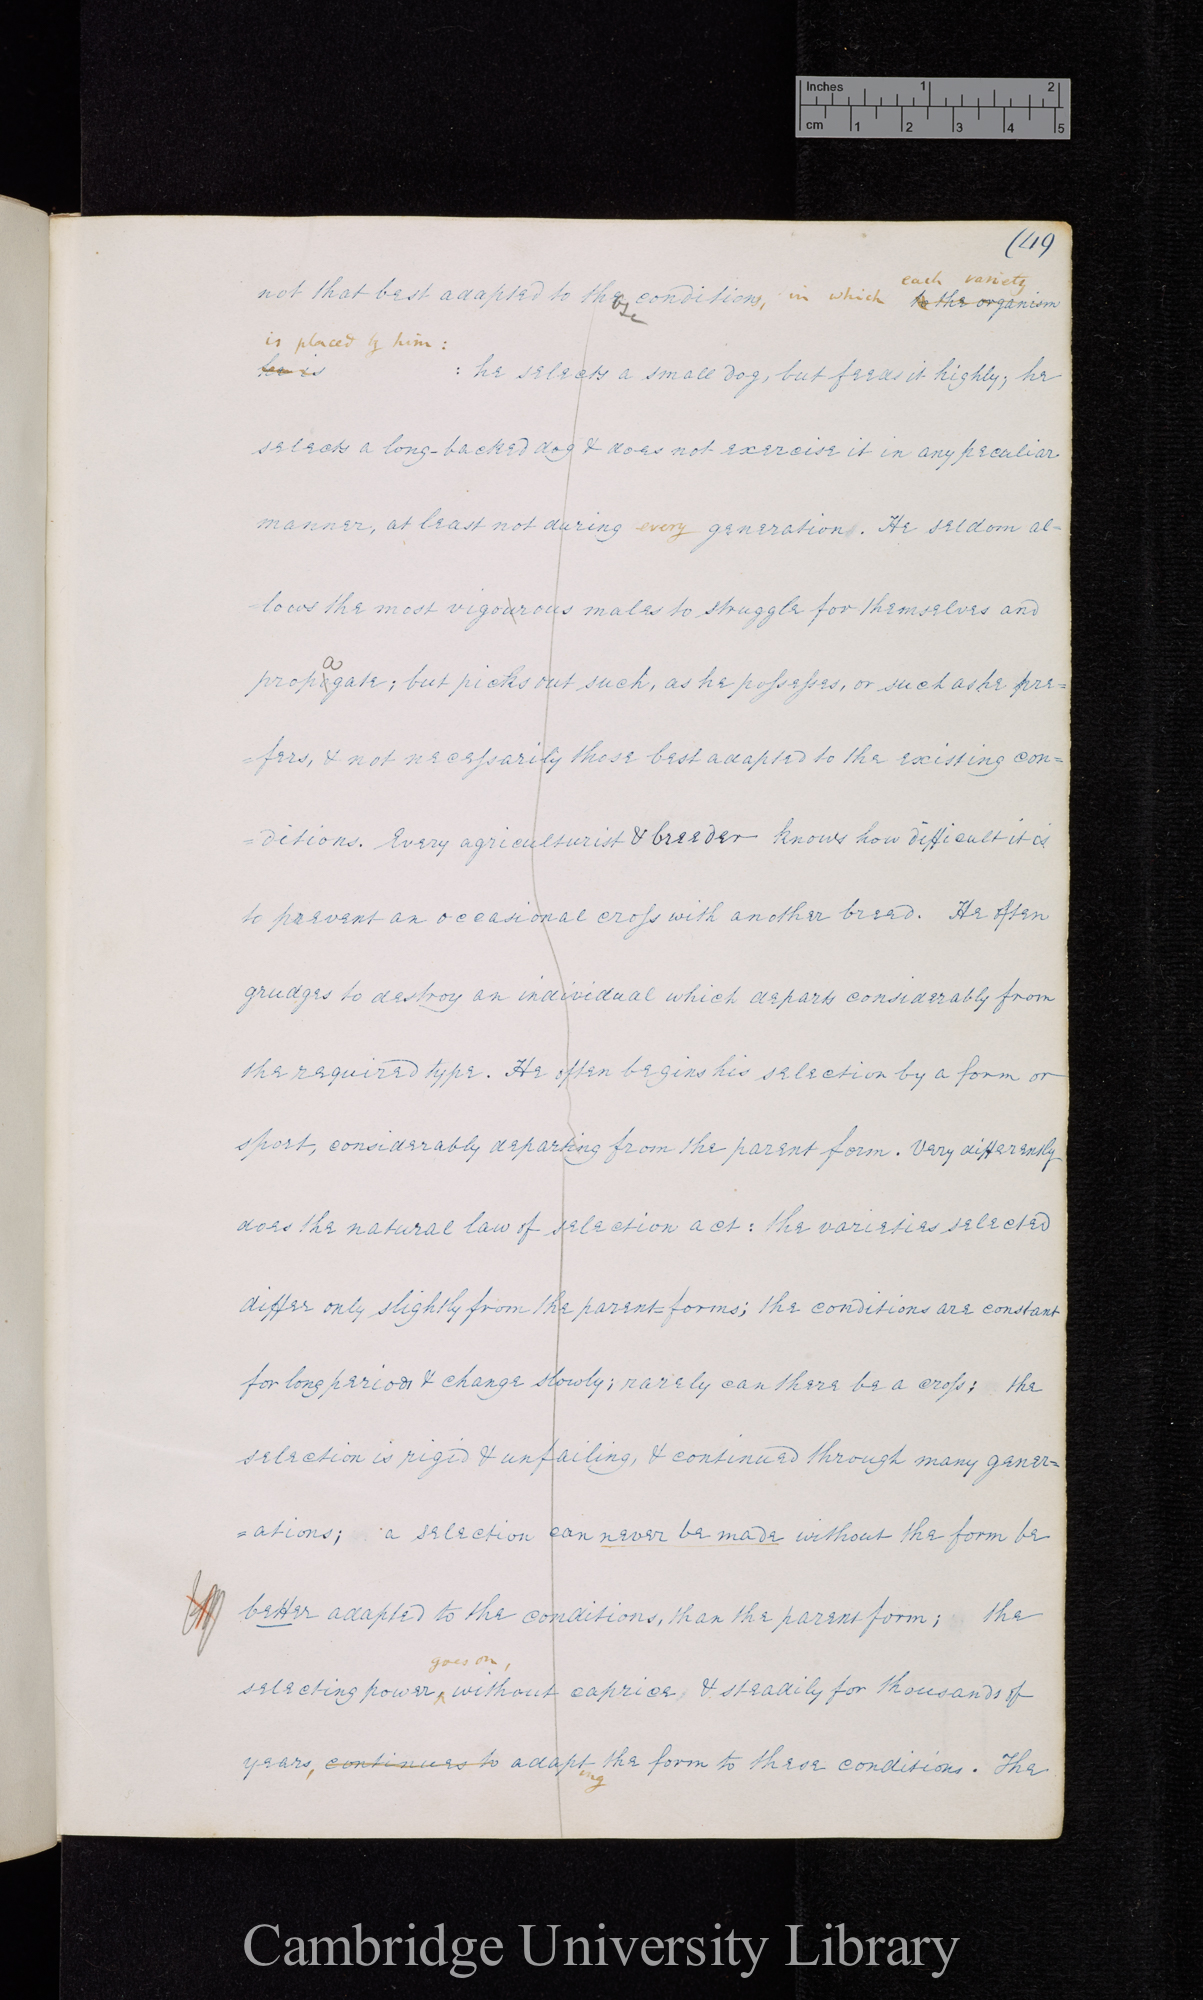 Inches 1 2
cm 1 2 3 4 5
(49
each variety
not that best adapted to those conditions, in which to the organism
is placed by him :
he is : he selects a small dog, but feeds it highly; he
selects a long-backed dog & does not exercise it in any peculiar
manner, at least not during every generation. He seldom al-
lows the most vigourous males to struggle for themselves and
a
propigate; but picks out such, as he possesses, or such as he pre=
=fers, & not necessarily those best adapted to the existing con=
=ditions. Every agriculturist & breeder knows how difficult it is
to prevent an occasional cross with another breed. He often
grudges to destroy an individual which departs considerably from
the required type. He often begins his selection by a form or
sport, considerably departing from the parent form. Very differently
does the natural law of selection act: the varieties selected
differ only slightly from the parent=forms; the conditions are constant
for long periods & change slowly; rarely can there be a cross; the
selection is rigid & unfailing, & continued through many gener=
=ations; a selection can never be made without the form be
better adapted to the conditions, than the parent form; the
goes on,
selecting power, without caprice, & steadily for thousands of
years, continues to adapt the form to these conditions. The
ing
Cambridge University Library